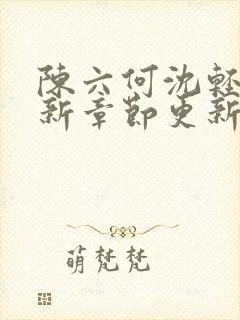 陳六何沈輕
新章節更新
萌梵梵